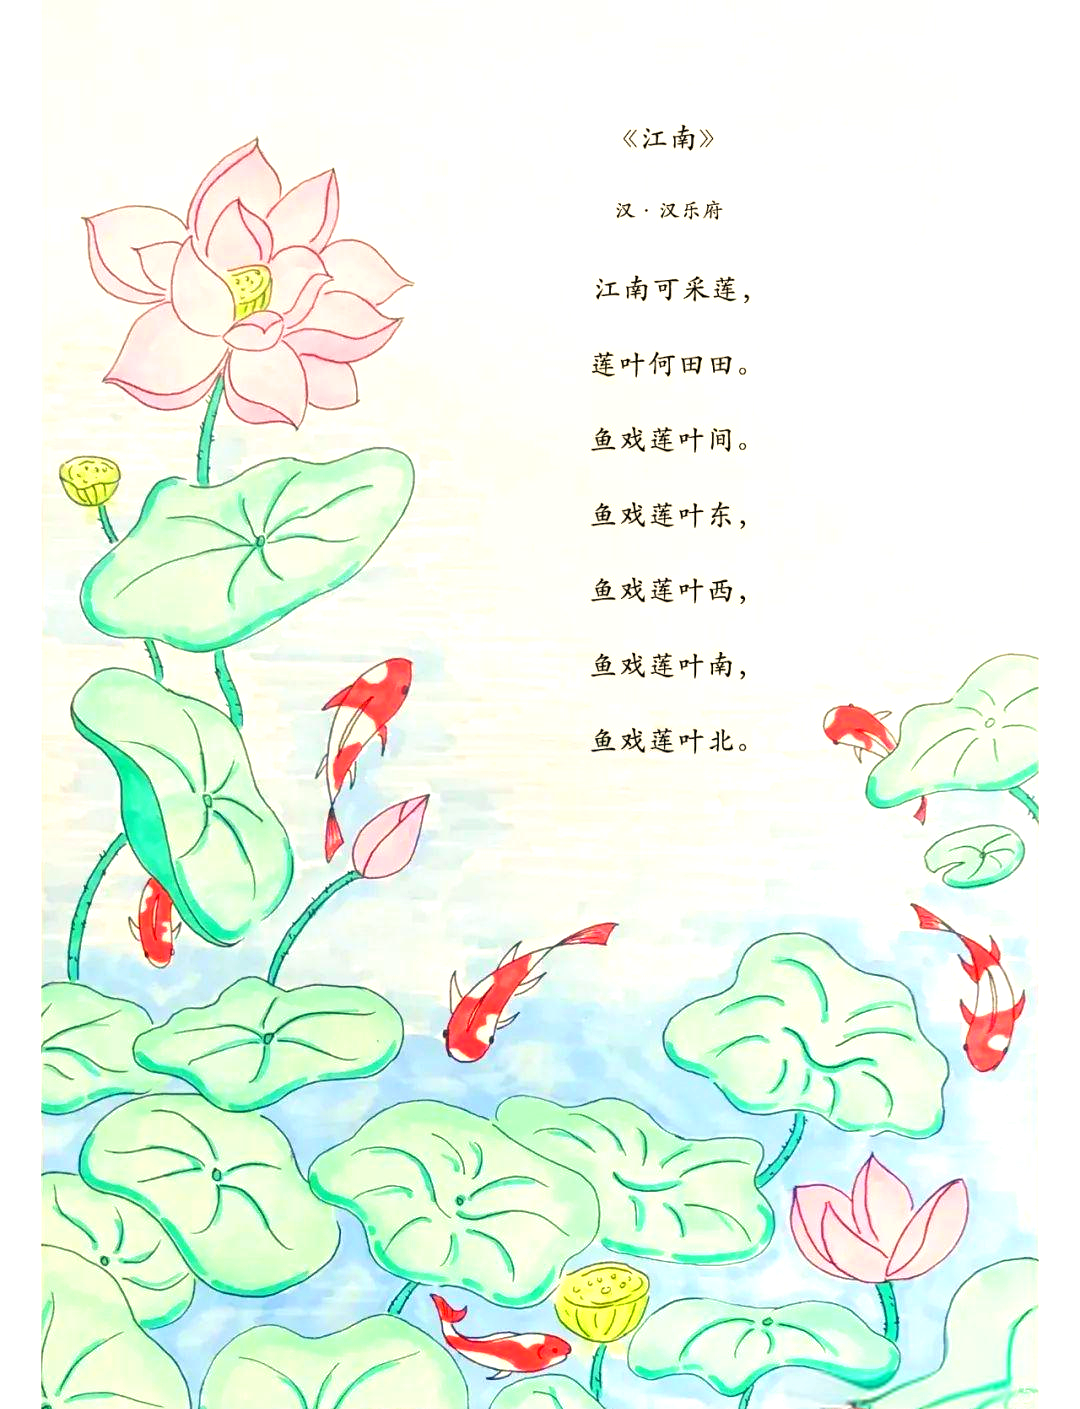 《江南》
汉·汉乐府
江南可采莲，
莲叶何田田。
鱼戏莲叶间。
鱼戏莲叶东，
鱼戏莲叶西，
鱼戏莲叶南，
鱼戏莲叶北。